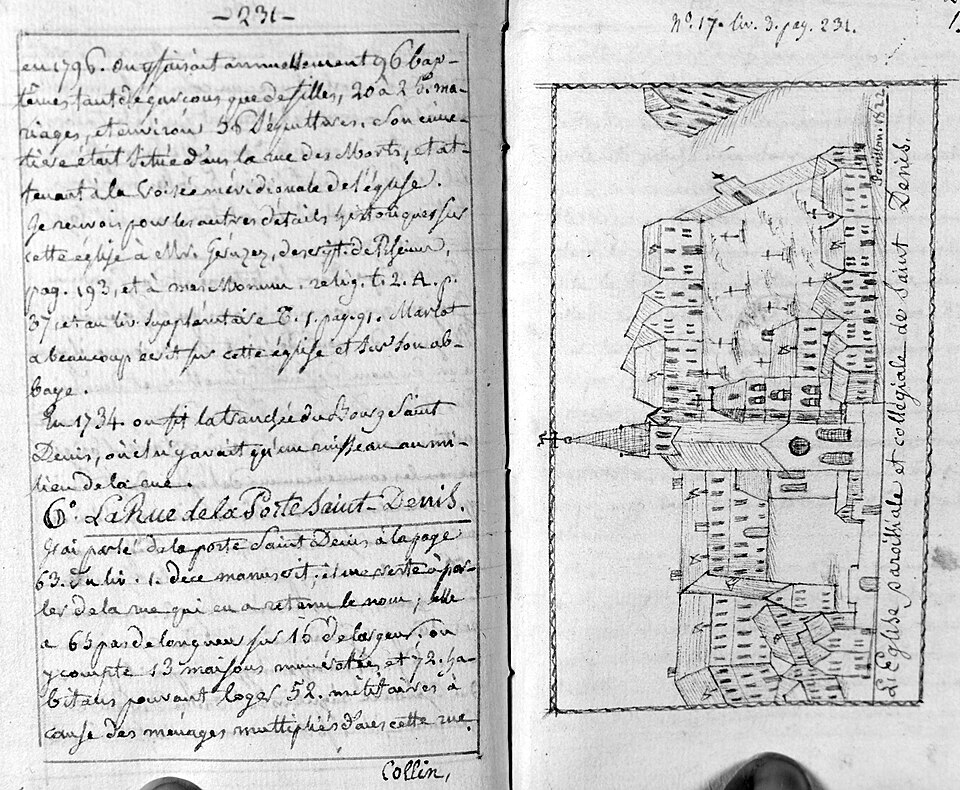 — 231 —
en 1796. on y faisait annuellement 96 bap-
têmes tant de garcons que de filles, 20 à 25. ma-
riages, et environ 58 Sépultures. Son cime-
tière était situé dans la rue des Morts, et at-
tenant à la Croisée méridionale de l'église.
Je renvois pour les autres détails historiques sur
cette église à Mr. Geruzez, descript. de Reims,
pag. 193, et à mes Monum. relig. t. 2. A. p.
37, et au liv. supplémentaire T. 1. pag. 91. Marlot
a beaucoup écrit sur cette église et sur son ab-
baye.
En 1734 on fit la tranchée du Bourg Saint
Denis, où il n'y avait qu'un ruisseau au mi-
lieu de la rue.
6° La Rue de la Porte Saint-Denis.
J'ai parlé de la porte Saint Denis à la page
63. du liv. 1. de ce manuscrit. il me reste à par-
ler de la rue qui en a retenu le nom; elle
a 65 pas de longueur sur 16 de largeur. on
y compte 13 maisons numérotées, et 72. ha-
bitans pouvant loger 52. militaires à
cause des ménages multipliés dans cette rue
Collin,
N°. 17. liv. 3. pag. 231.
Povillon. 1822
L'Eglise paroithiale et collégiale de Saint Denis.